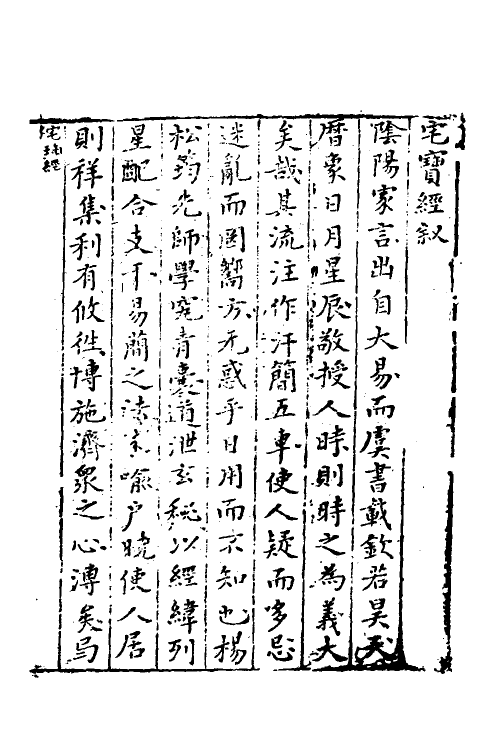 宅寶經叙
陰陽家言出自大易而虞書載欽若昊天
曆象日月星辰敬授人時則時之為義大
矣哉其流注作汗簡五車使人疑而多忌
迷亂而罔嚮方无惑乎日用而不知也楊
松筠先師學究青囊道泄玄秘以經緯列
星配合支干易簡之法家喻户曉使人居
則祥集利有攸徃博施濟衆之心溥矣焉
宅寶經